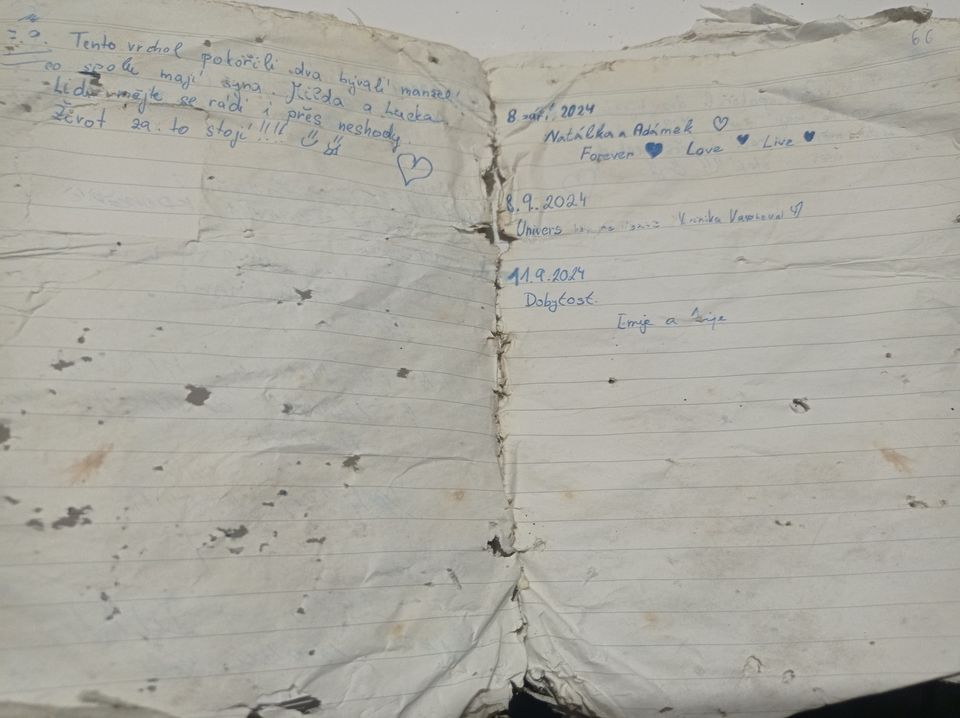 7. 9. Tento vrchol pokořili dva bývalí manželé
co spolu mají syna. a Lucka
Lidi mějte se rádi i přes neshody.
Život za to stojí!!!!
66
8. září, 2024
Natálka a Adámek
Forever Love Live
8.9.2024
Univers
11.9.2024
Dobytost.
a